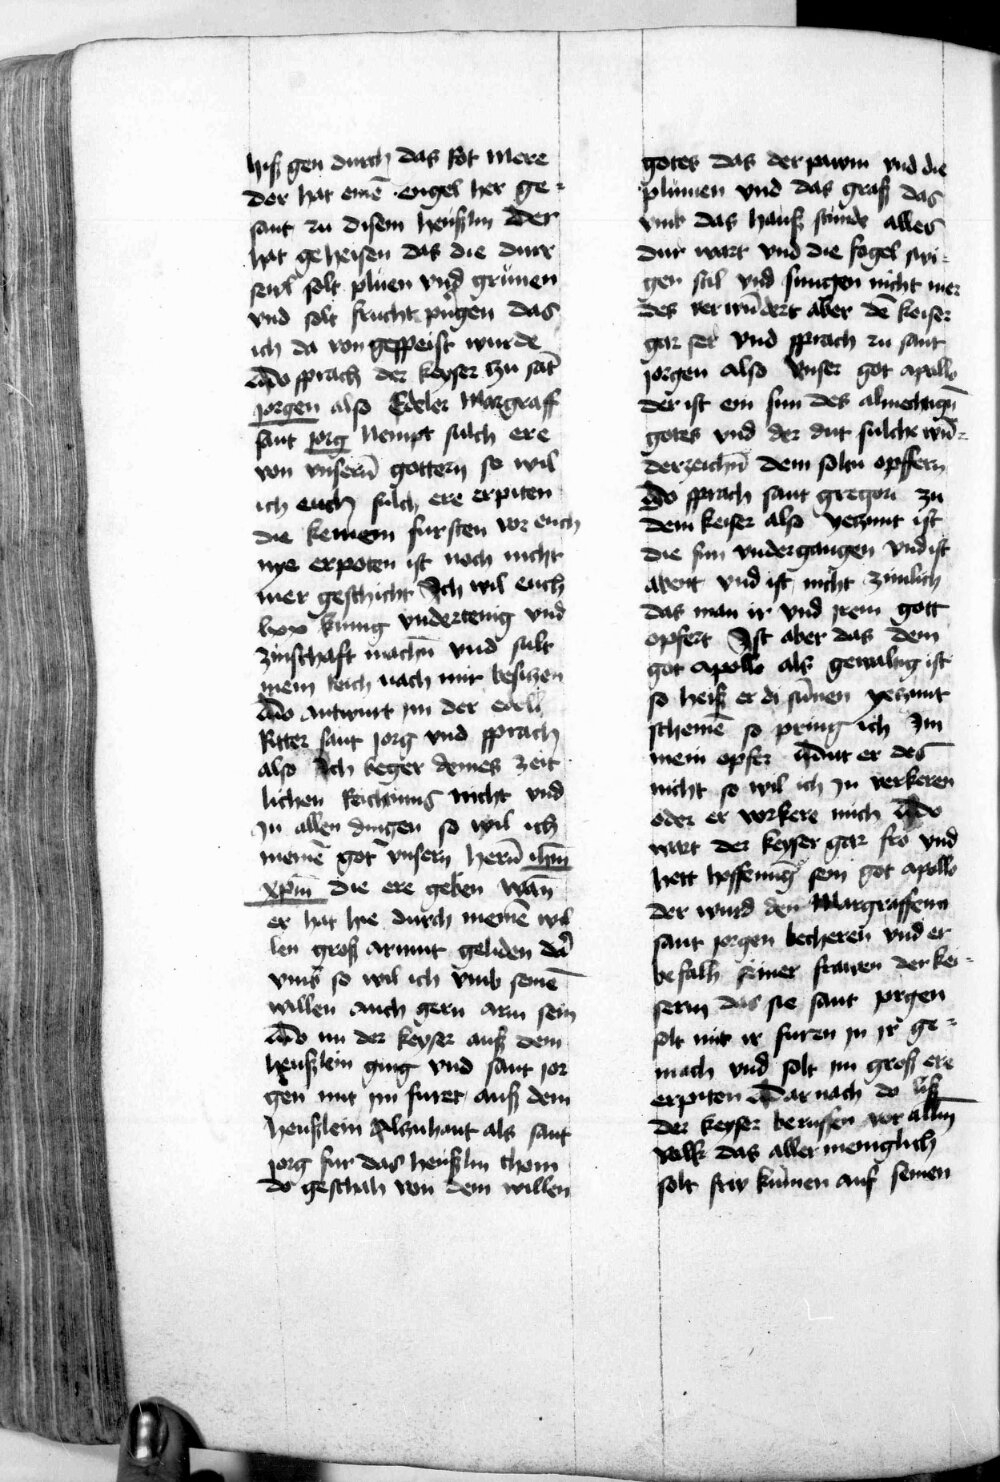 hiß gen durch das Rot Mere
der hat einē engel her ge-
sant zu disem heußlin Der
hat geheisen das die durr
sewl solt plüen vnd grünen
vnd solt frucht pringen das
ich da von gespeist wurde
Do sprach der keyser zu sāt
jorgen also Edeler Margraff
sant jorg Nempt sulch ere
von vnserū gottern so wil
ich euch sulch ere erpiten
die keinem fursten vor euch
nye erpoten ist noch nicht
mer geschicht Ich wil euch
lxx kunig vndertenig vnd
zinschaft machn̄ vnd sult
mein Reich nach mir besiczen
Do antwurt jm der edel
Ritter sant jorg vnd sprach
also Ich beger deines zeit
lichen Reichtums nicht vnd
Jn allen dingen so wil ich
meinē got vnsern herrn̄ ihm̄
xpm̄ die ere geben wan̄
er hat hie durch meinē wil
len groß armut geliden da
vmb so wil ich vmb seinē
willen auch gern arm sein
Do nu der keyser auß dem
heußlein ging vnd sant jor
gen mit jm furet auß dem
heußlein Alzuhant als sant
jorg fur das heußlin chom
do geschah von dem willen
gotes das der pawm vnd die
plumen vnd das graß das
vmb das hauß stunde alles
dur wart vnd die fogel swi-
gen stil vnd sungen nicht mer
des verwūdert aber dē keiser
gar ser vnd sprach zu sant
jorgen also Vnser got apollo
der ist ein sun des almechtign̄
gotes vnd der dut sulche wū-
derzeichn̄ dem soltu opffern
Do sprach sant gregori zu
dem keiser also yeczunt ist
die sun vndergangen vnd ist
abent vnd ist nicht zimlich
das man ir vnd jrem gott
opfert Ist aber das dem
got apollo als gewaltig ist
so heiß er di sunen yeczunt
scheinē so pring ich Jm
mein opfer Dut er des
nicht so wil ich jn verkeren
oder er vorkere mich Do
wart der keyser gar fro vnd
hett hoffenung sein got apollo
der wurd den Margraffenn
sant jorgen becheren vnd er
befalh seiner frawen der kei-
serin das sie sant jorgen
solt mit ir furen jn jr ge-
mach vnd solt im groß ere
erpiten Dar nach do liß
der keyser beruffen vor allm̄
volk das aller meniglich
solt frw kumen auf seinen